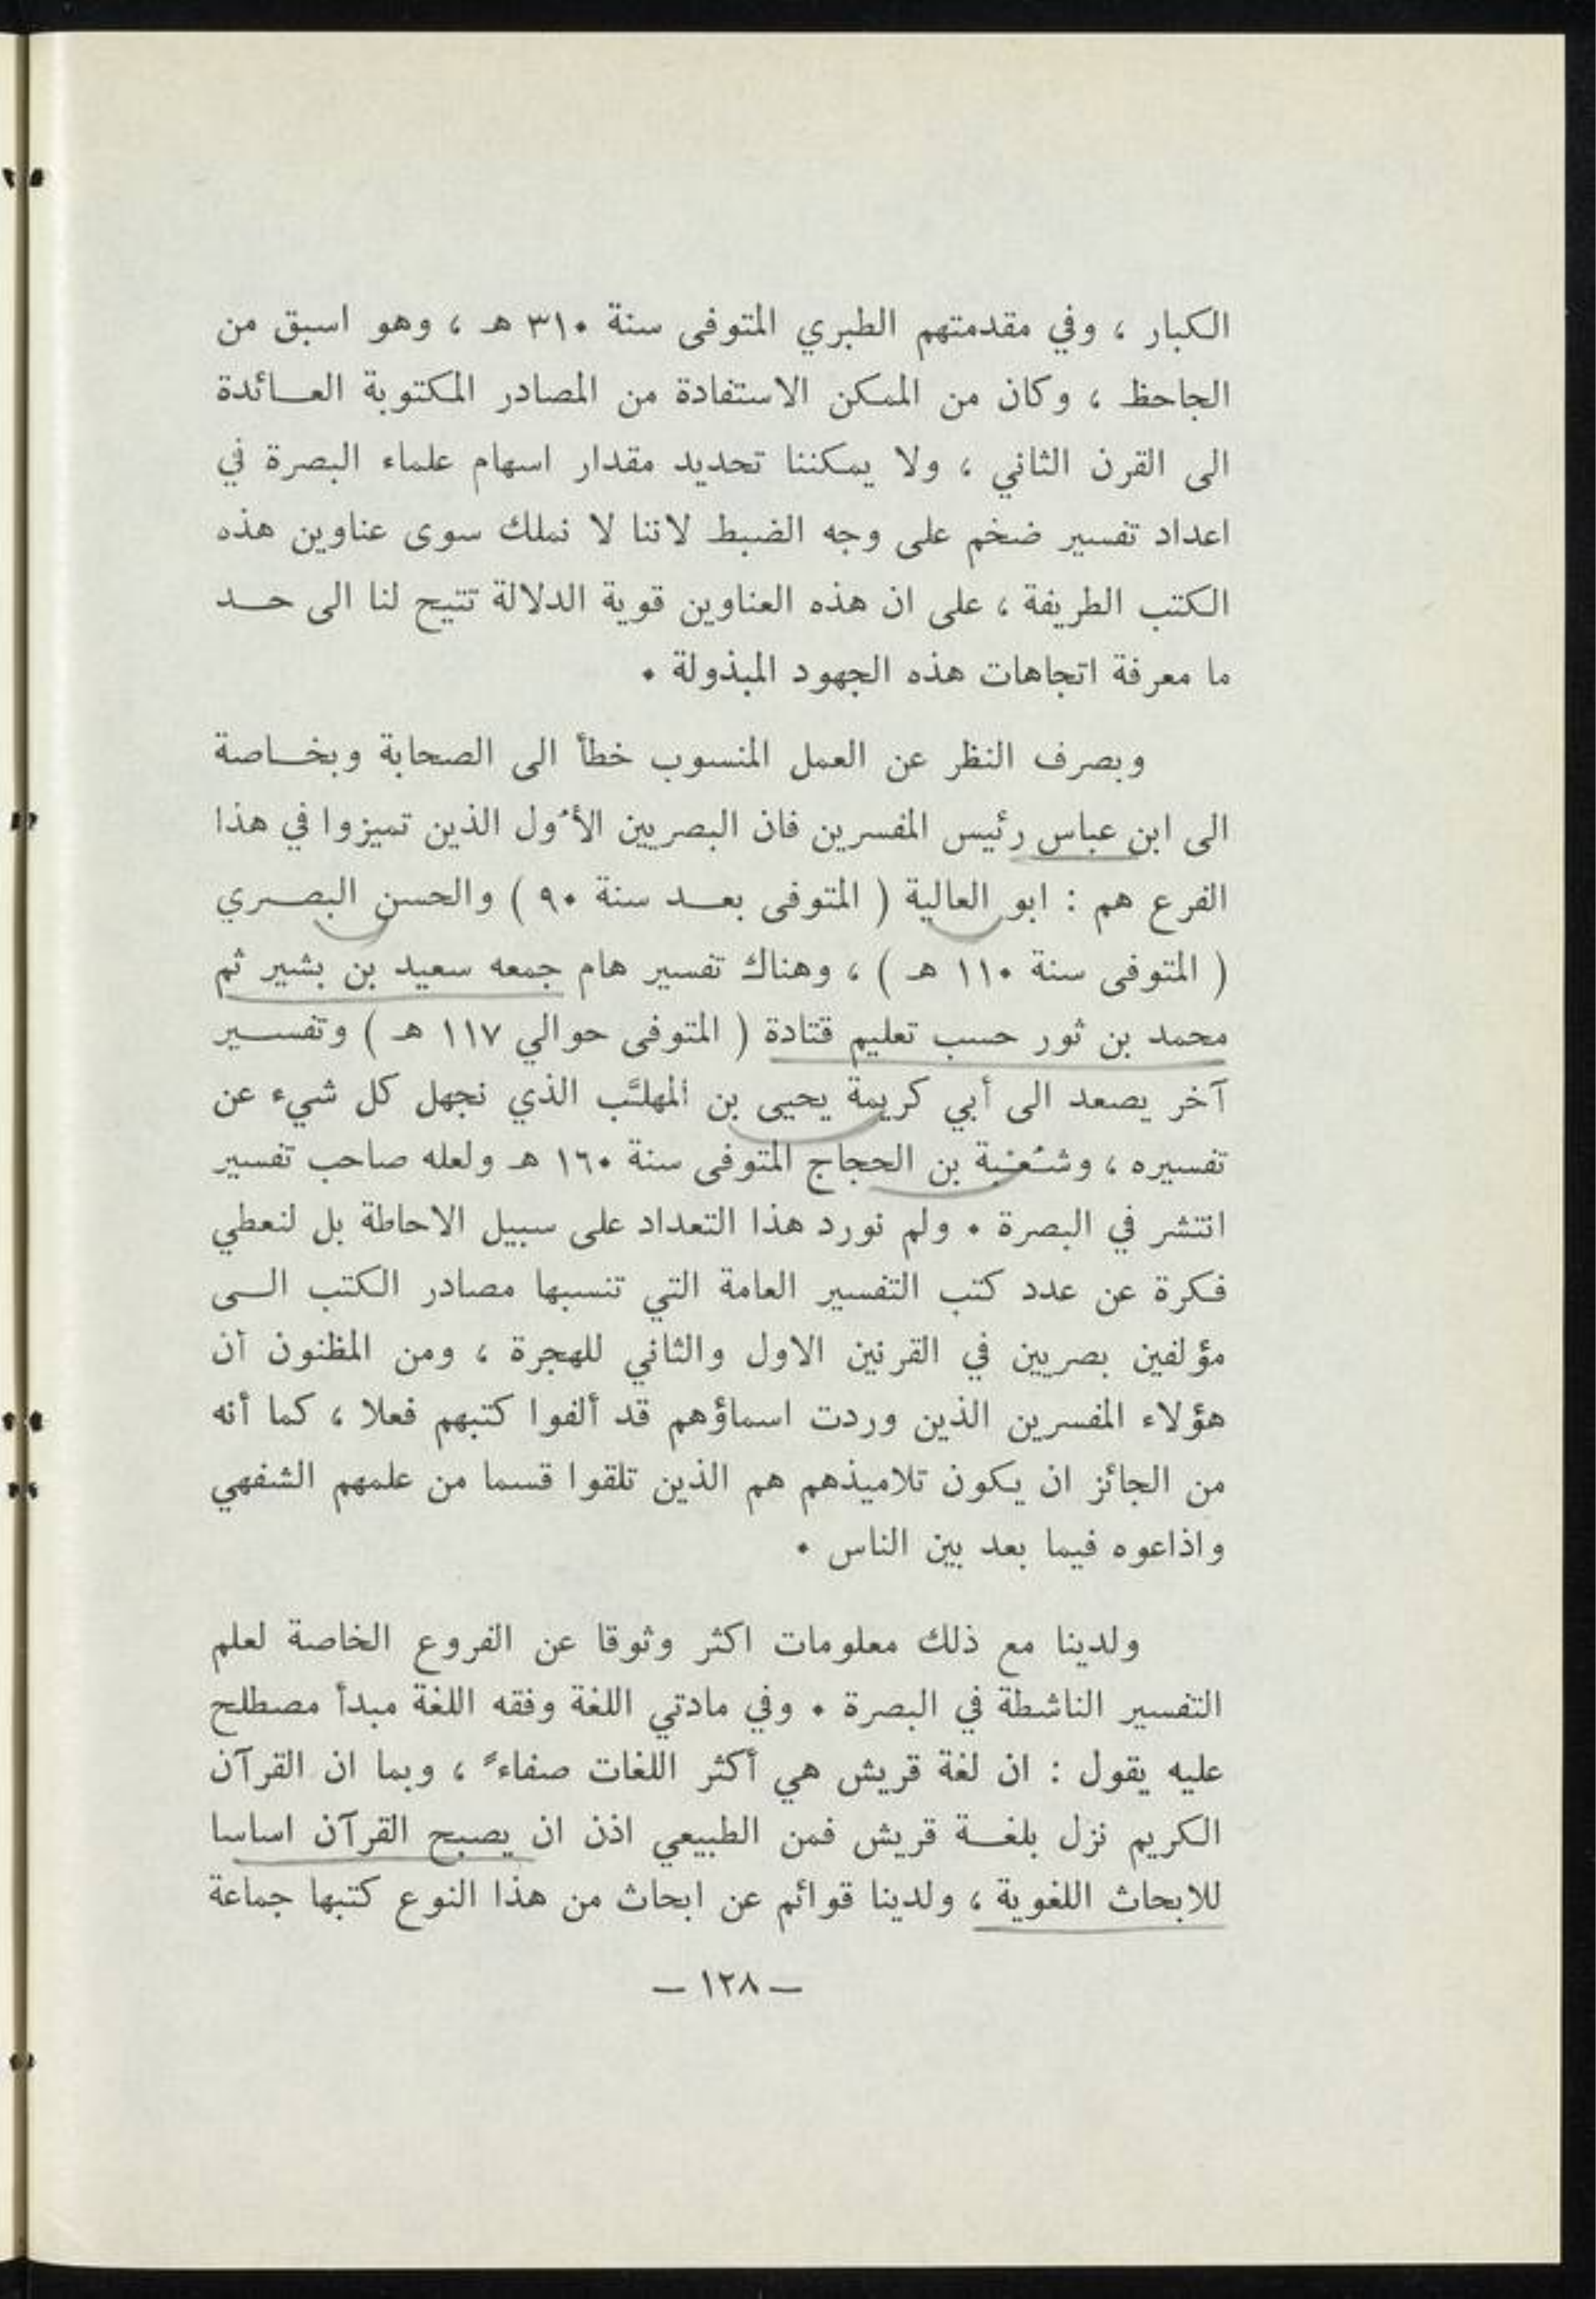 الكبار ، وفي مقدمتهم الطبري المتوفى سنة ٣١٠ هـ ، وهو اسبق من
الجاحظ ، وكان من الممكن الاستفادة من المصادر المكتوبة العـائدة
الى القرن الثاني ، ولا يمكننا تحديد مقدار اسهام علماء البصرة في
اعداد تفسير ضخم على وجه الضبط لاننا لا نملك سوى عناوين هذه
الكتب الطريفة ، على ان هذه العناوين قوية الدلالة تتيح لنا الى حـد
ما معرفة اتجاهات هذه الجهود المبذولة .
وبصرف النظر عن العمل المنسوب خطأ الى الصحابة وبخـاصة
الى ابن عباس رئيس المفسرين فان البصريين الأُول الذين تميزوا في هذا
الفرع هم : ابو العالية ( المتوفى بعـد سنة ٩٠ ) والحسن البصـري
( المتوفى سنة ١١٠ هـ ) ، وهناك تفسير هام جمعه سعيد بن بشير ثم
محمد بن ثور حسب تعليم قتادة ( المتوفى حوالي ١١٧ هـ ) وتفسـير
آخر يصعد الى أبي كريمة يحيى بن المهلَّب الذي نجهل كل شيء عن
تفسيره ، وشُعْبة بن الحجاج المتوفى سنة ١٦٠ هـ ولعله صاحب تفسير
انتشر في البصرة . ولم نورد هذا التعداد على سبيل الاحاطة بل لنعطي
فكرة عن عدد كتب التفسير العامة التي تنسبها مصادر الكتب الـى
مؤلفين بصريين في القرنين الاول والثاني للهجرة ، ومن المظنون أن
هؤلاء المفسرين الذين وردت اسماؤهم قد ألفوا كتبهم فعلا ، كما أنه
من الجائز ان يكون تلاميذهم هم الذين تلقوا قسما من علمهم الشفهي
واذاعوه فيما بعد بين الناس .
ولدينا مع ذلك معلومات اكثر وثوقا عن الفروع الخاصة لعلم
التفسير الناشطة في البصرة . وفي مادتي اللغة وفقه اللغة مبدأ مصطلح
عليه يقول : ان لغة قريش هي أكثر اللغات صفاءً ، وبما ان القرآن
الكريم نزل بلغـة قريش فمن الطبيعي اذن ان يصبح القرآن اساسا
للابحاث اللغوية ، ولدينا قوائم عن ابحاث من هذا النوع كتبها جماعة
— ١٢٨ —